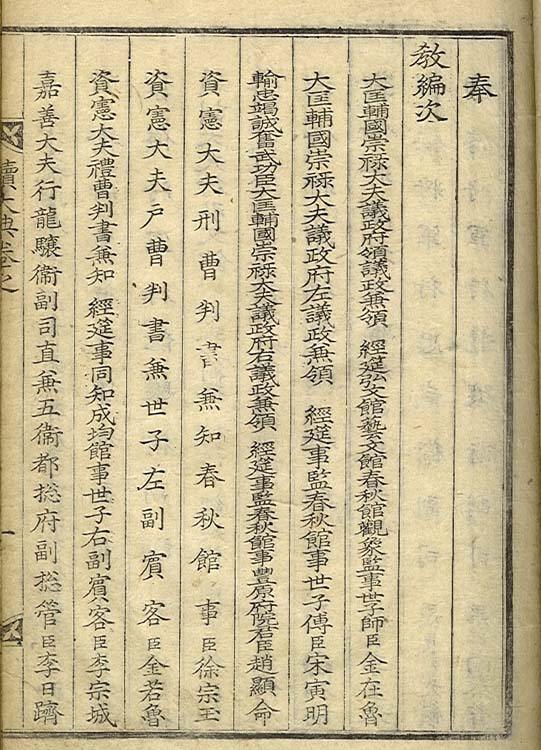 奉
敎編次
大匡輔國崇祿大夫議政府領議政兼領 經筵弘文館藝文館春秋館觀象監事世子師臣金在魯
大匡輔國崇祿大夫議政府左議政兼領 經筵事監春秋館事世子傅臣宋寅明
輸忠竭誠奮武功臣大匡輔國崇祿大夫議政府右議政兼領 經筵事監春秋館事豐原府院君臣趙顯命
資憲大夫刑曹判書兼知春秋館事臣徐宗玉
資憲大夫戶曹判書兼世子左副賓客臣金若魯
資憲大夫禮曹判書兼知 經筵事同知成均館事世子右副賓客臣李宗城
嘉善大夫行龍驤衞副司直兼五衞都摠府副摠管臣李日躋
續大典卷之 一